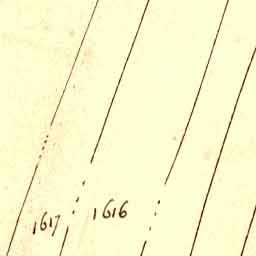 1617 1616